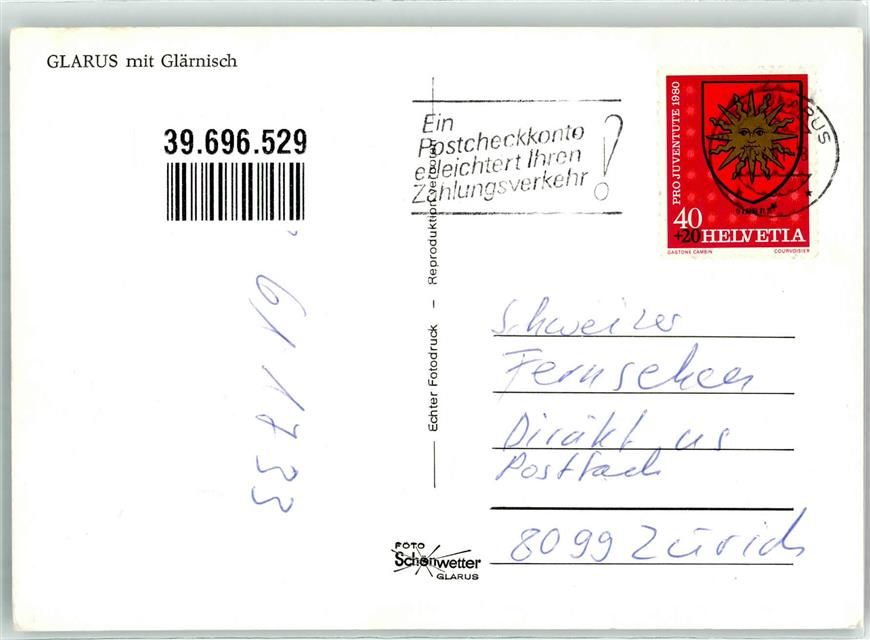 GLARUS mit Glärnisch
39.696.529
Ein
Postcheckkonto
erleichtert Ihren
Zahlungsverkehr!
PRO JUVENTUTE 1980
40
+20 HELVETIA
GASTONE CAMBIN COURVOISIER
RUS
Echter Fotodruck – Reproduktion verboten
61 1733
Schweizer
Fernsehen
Diräkt us
Postfach
8099 Zürich
FOTO
Schönwetter
GLARUS